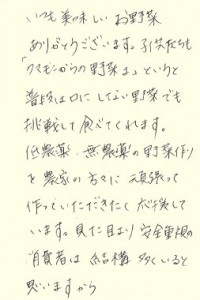 いつも美味しいお野菜
ありがとうございます。子供たちも
「クマモンからの野菜よ」というと
普段は口にしない野菜でも
挑戦して食べてくれます。
低農薬・無農薬の野菜作り
を農家の方々に頑張って
作っていただきたく応援して
います。見た目より安全重視の
消費者は結構多くいると
思いますから